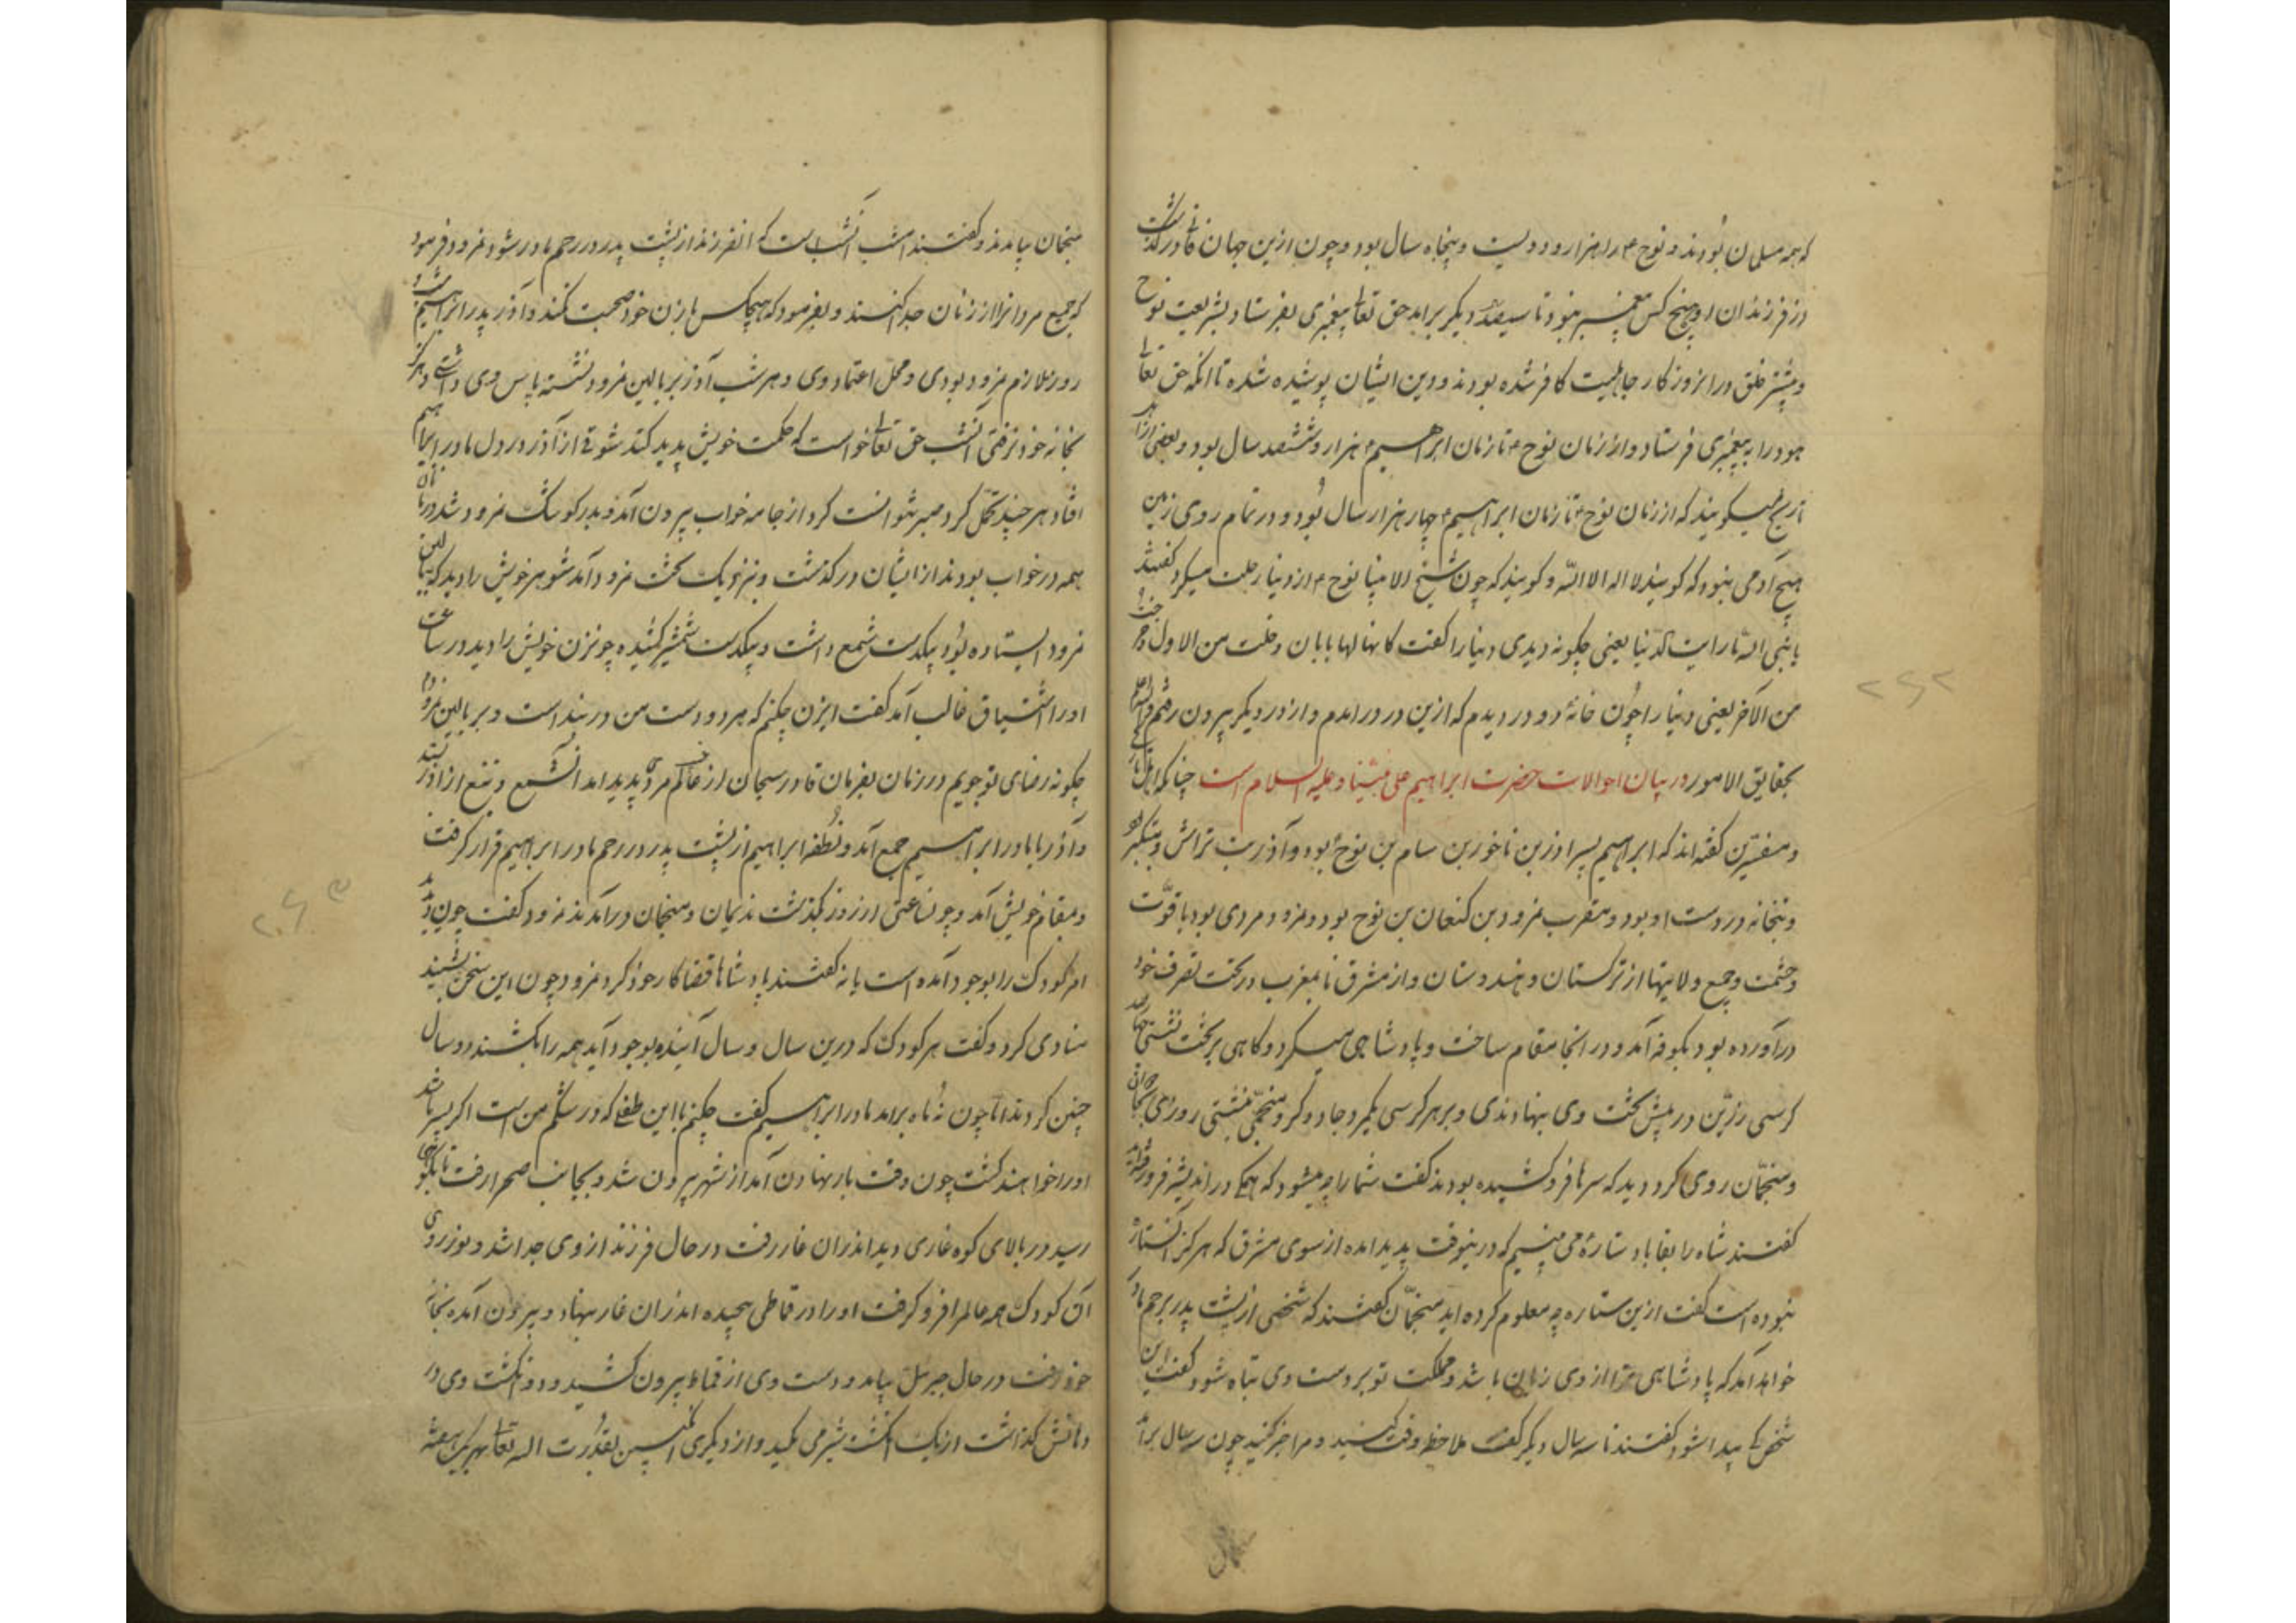 که همه مسلمان بودند و نوح ۴ را هزار و دویست و پنجاه سال بود و چون ازین جهان درگذشت
از فرزندان او هیچ کس پیغمبر نبود تا سیصد دیگر برامد حق تعالی پیغمبری بفرستاد بشریعت نوح
و پیشتر خلق در آن روزکار جاهلیت کافر شده بودند و دین ایشان پوشیده شده تا انکه حق تعالی
هود را به پیغمبری فرستاد و از زمان نوح ۴ تا زمان ابراهیم ۴ هزار و ششصد سال بود و بعضی از اهل
تاریخ میکویند که از زمان نوح ۴ تا زمان ابراهیم ۴ چهار هزار سال بود و در تمام روی زمین
هیچ آدمی نبود که کویند لا اله الا الله و کویند که چون شیخ الانبیا نوح ۴ از دنیا رحلت میکرد کفتند
یا نبی الله ما رایت الدنیا یعنی چکونه دیدی دنیا را کفت کانها لها بابان دخلت من الاول و خرجت
من الآخر یعنی دنیا را چون خانهٔ دو در دیدم که ازین در درامدم و از در دیکر بیرون رفتم والله اعلم
بحقایق الامور در بیان احوالات حضرت ابراهیم علی نبینا و علیه السلام است چنانکه اهل تاریخ
و مفسرین کفته اند که ابراهیم پسر اوزین ناخور بن سام بن نوح بود و آذر بت تراش و بتکر بود
و بتخانه در دست او بود و مقرب نمرود بن کنعان بن نوح بود و نمرود مردی بود با قوّت
و حشمت و جمیع ولایتها از ترکستان و هندوستان و از مشرق تا بمغرب در تحت تصرف خود
درآورده بود بکوفه آمد و در انجا مقام ساخت و پادشاهی میکرد و کاهی بر تخت نشستی چهارصد
کرسی زرّین در پیش تخت وی بنهادندی و بر هر کرسی یکمرد جادوکر و منجمی نشستی روزی
و منجّمان روی کرد دید که سرها فرو کشیده بودند کفت شما را چه میشود که همکی در اندیشه فرو رفته اید
کفتند شاه را بقا باد ستارهٔ می بینیم که درینوقت پدید امده از سوی مشرق که هرکز آن ستاره
نبوده است کفت ازین ستاره چه معلوم کرده اید منجّمان کفتند که شخصی از پشت پدر برحم مادر
خواهد آمد که پادشاهی ترا از وی زیان باشد و مملکت تو بر دست وی تباه شود کفت این
شخص کی پیدا شود کفتند تا سه سال دیکر کفت ملاحظه وقت کنید و مرا خبر کنید چون سه سال برامد
منجمان بیامدند و کفتند امشب آنشب است که انفرزند از پشت پدر در رحم مادر شود نمرود فرمود
که جمیع مردانرا از زنان جدا کنند و بفرمود که هیچکس با زن خود صحبت نکند و آذر پدر ابراهیم شب و
روز ملازم نمرود بودی و محل اعتماد وی و هر شب آذر بر بالین نمرود نشسته پاس وی داشتی و هرکز
بخانه خود نرفتی آنشب حق تعالی خواست که حکمت خویش پدید کند شوقی از آذر در دل مادر ابراهیم
افتاد هر چند تحمّل کرد صبر نتوانست کرد از جامه خواب بیرون آمد و بدر کوشک نمرود شد دربانان
همه در خواب بودند از ایشان درکذشت و بنزدیک تخت نمرود آمد شوهر خویش را دید که ببالین
نمرود ایستاده بود بیکدست شمع داشت و بیکدست شمشیر کشیده چون زن خویش را دید در ساعت
اورا اشتیاق غالب آمد کفت ایزن چکنم که هر دو دست من در بند است و بر بالین نمرودم
چکونه رضای تو جویم در زمان بفرمان قادر سبحان از عالم مردی پدید امد آنشمع و تیغ از آذر بستد
و آذر با مادر ابراهیم جمع آمد و نطفه ابراهیم از پشت پدر در رحم مادر ابراهیم قرار کرفت
و بمقام خویش آمد و چون ساعتی از روز بکذشت ندیمان و منجمان درآمدند نمرود کفت چون دیدید
امر کودک را بوجود آمده است یا نه کفتند پادشاها قضا کار خود کرد نمرود چون این سخن بشنید
منادی کرد و کفت هر کودک که درین سال و سال آینده بوجود آید همه را بکشند دو سال
چنین کردند اما چون نُه ماه برامد مادر ابراهیم کفت چکنم با این طفلی که در شکم من است اکر پسر باشد
اورا خواهند کشت چون وقت بار نهادن آمد از شهر بیرون شد و بجانب صحرا رفت تا بکوهی
رسید در بالای کوه غاری دید اندران غار رفت در حال فرزند از وی جدا شد و نور روی
آن کودک همه عالم را فرو کرفت اورا در قماطی پیچیده اندران غار بنهاد و بیرون آمده بخانه
خود رفت در حال جبرئیل بیامد و دست وی از قماط بیرون کشید و دو انکشت وی در
دهانش کذاشت از یک انکشت شیر می مکید و از دیکری انکبین بقدرت الله تعالی بهر یک هفته